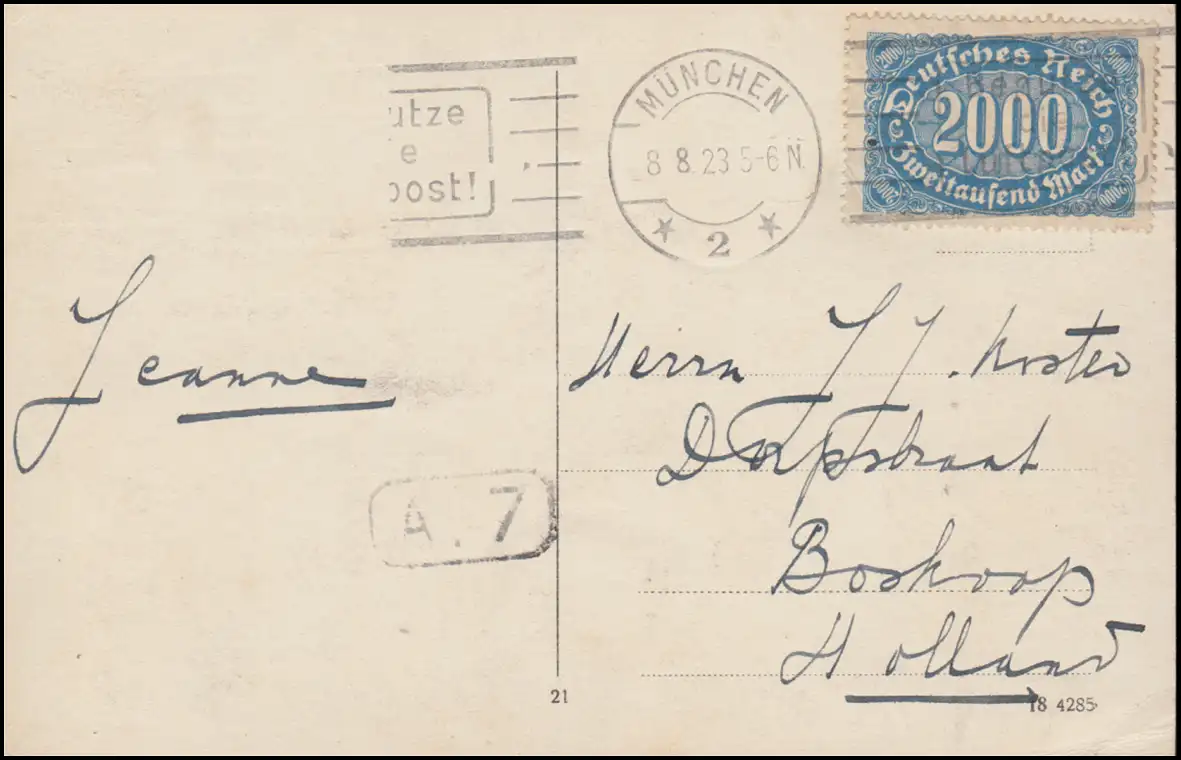 utze
e
post!
MÜNCHEN
8 8.23 5-6 N.
2
Deutsches Reich
2000
2000
2000
Zweitausend Mark
2000
2000
Jeanne
Herrn J J. Koster
Dorpstraat
Boskoop
Holland
A. 7
21
18 4285